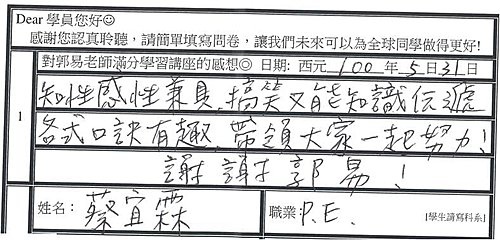 Dear 學員您好☺
感謝您認真聆聽，請簡單填寫問卷，讓我們未來可以為全球同學做得更好!
對郭易老師滿分學習講座的感想◎ 日期: 西元 100 年 5 日 31 日
1
知性感性兼具,搞笑又能知識伝遞
各式口訣有趣,帶領大家一起努力!
謝謝郭易!
姓名: 蔡宜霖 職業: P.E. [學生請寫科系]